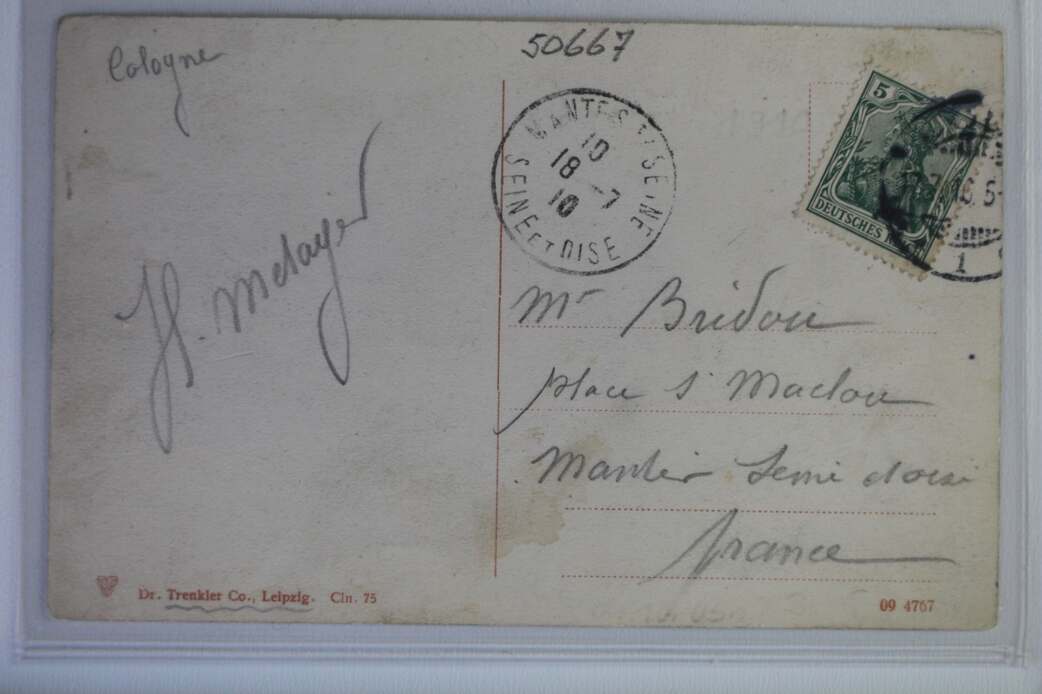 Cologne
50667
MANTES S/ SEINE
10
18-7
10
SEINE ET OISE
5
DEUTSCHES REICH
H. Metayer
Mr Bridou
place St Maclou
Mantes Seine et oise
france
Dr. Trenkler Co., Leipzig. Cln. 75
09 4767